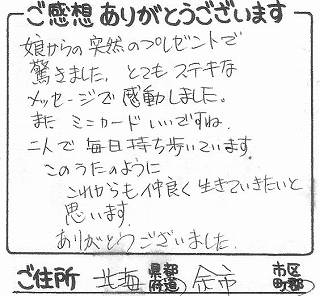 ご感想ありがとうございます
娘からの突然のプレゼントで
驚きました。とてもステキな
メッセージで感動しました。
また ミニカードいいですね
二人で毎日持ち歩いています。
このうたのように
これからも仲良く生きていきたいと
思います。
ありがとうございました。
ご住所 北海 都道府県 余市 市区町郡